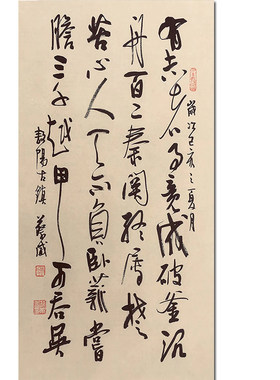 有志者事竟成破釜沉
舟百二秦關終屬楚
苦心人天不負臥薪嘗
膽三千越甲可吞吳
歲次己亥之夏月
陽古鎮